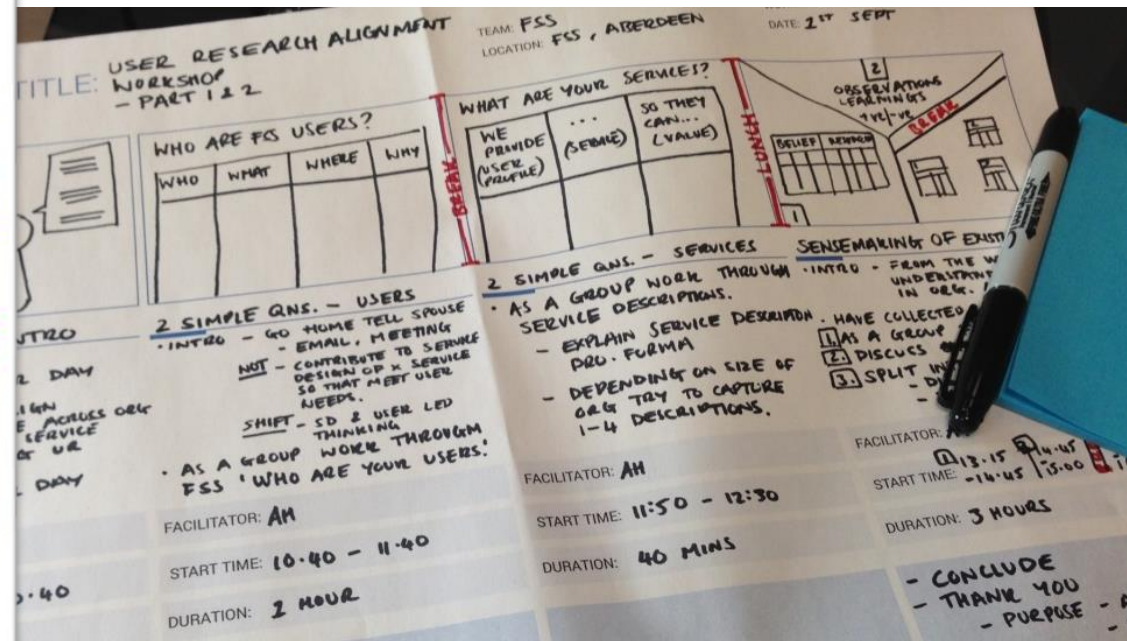 TITLE: USER RESEARCH ALIGNMENT
WORKSHOP
- PART 1 & 2
TEAM: FSS
LOCATION: FSS, ABERDEEN
DATE: 1ST SEPT
WHO ARE FSS USERS?
WHO WHAT WHERE WHY
BREAK
WHAT ARE YOUR SERVICES?
WE PROVIDE (USER PROFILE)
... (SERVICE)
SO THEY CAN... (VALUE)
LUNCH
2
OBSERVATIONS
LEARNINGS
+ve/-ve
BREAK
BELIEF
1
INTRO
DAY
ACROSS ORG
SERVICE
UR
DAY
.40
2 SIMPLE QNS. - USERS
· INTRO - GO HOME TELL SPOUSE
- EMAIL, MEETING
NOT - CONTRIBUTE TO SERVICE
DESIGN OF X SERVICE
SO THAT MEET USER
NEEDS.
SHIFT - SD & USER LED
THINKING
· AS A GROUP WORK THROUGH
FSS 'WHO ARE YOUR USERS.'
FACILITATOR: AH
START TIME: 10.40 - 11.40
DURATION: 1 HOUR
2 SIMPLE QNS. - SERVICES
· AS A GROUP WORK THROUGH
SERVICE DESCRIPTIONS.
- EXPLAIN SERVICE DESCRIPTION
PRO.FORMA
- DEPENDING ON SIZE OF
ORG TRY TO CAPTURE
1-4 DESCRIPTIONS.
FACILITATOR: AH
START TIME: 11:50 - 12:30
DURATION: 40 MINS
SENSEMAKING OF
· INTRO - FROM THE
IN ORG.
· HAVE COLLECTED
1. AS A GROUP
2. DISCUSS
3. SPLIT
FACILITATOR:
START TIME: 1 13.15 - 14.45 2 14.45 - 15.00
DURATION: 3 HOURS
- CONCLUDE
- THANK YOU
- PURPOSE -